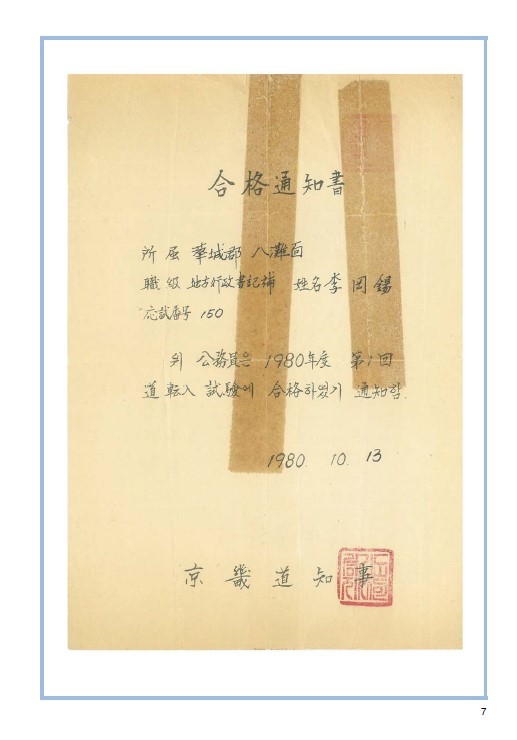 合格通知書
所屈 華城郡 八灘面
職級 地方行政書記補 姓名 李岡錫
応試番号 150
위 公務員은 1980年度 第1回
道転入 試驗에 合格하였기 通知함.
1980. 10. 13
京畿道知事
7